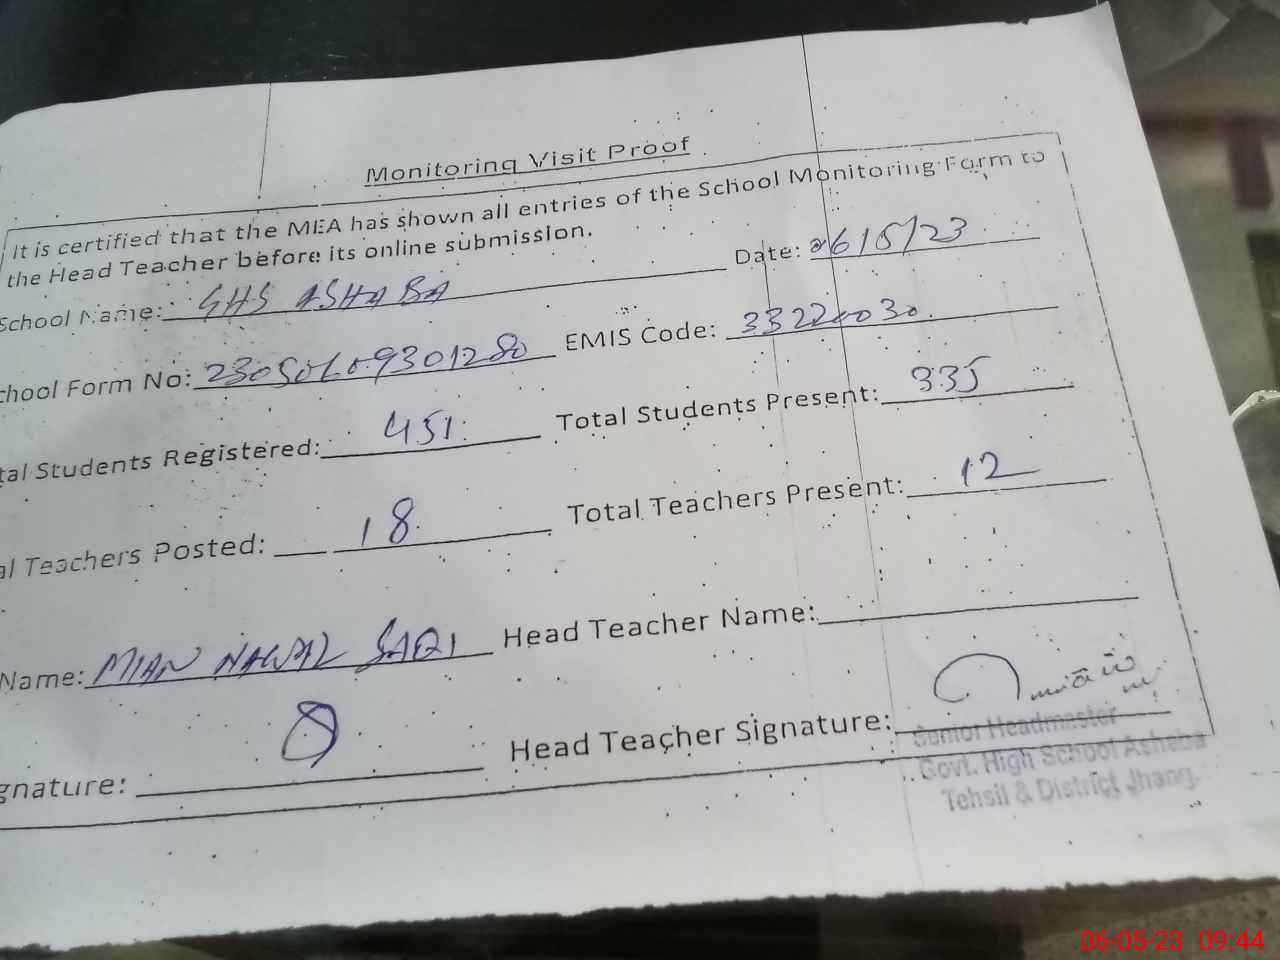 Monitoring Visit Proof
It is certified that the MEA has shown all entries of the School Monitoring Form to
the Head Teacher before its online submission.
School Name: GHS ASHABA Date: 06/5/23
chool Form No: 23050609301280 EMIS Code: 33220030
tal Students Registered: 451 Total Students Present: 335
al Teachers Posted: 18 Total Teachers Present: 12
Name: MIAN NAWAZ SAQI Head Teacher Name:
gnature: Head Teacher Signature:
Senior Headmaster
Govt. High School Ashaba
Tehsil & District Jhang.
06-05-23 09:44